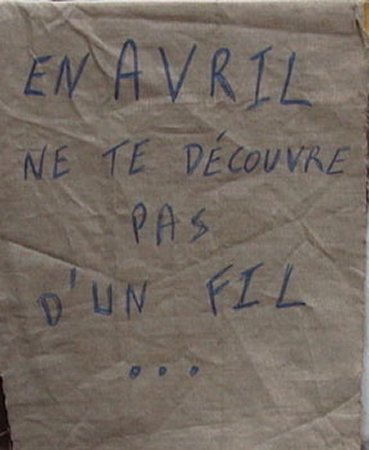 EN AVRIL
NE TE DÉCOUVRE
PAS
D'UN FIL
...